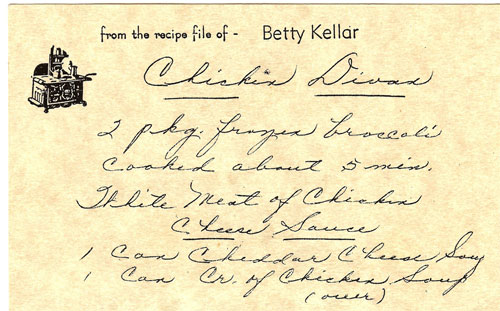 from the recipe file of - Betty Kellar
Chicken Divan
2 pkg. frozen broccoli
cooked about 5 min.
White Meat of Chicken
Cheese Sauce
1 Can Cheddar Cheese Soup
1 Can Cr. of Chicken Soup
(over)